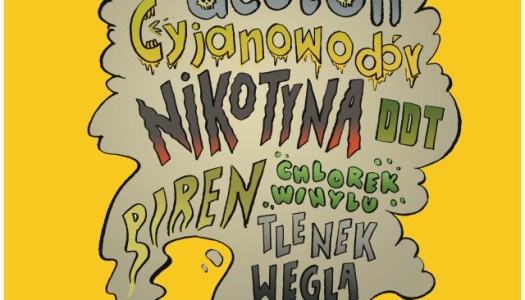 aceton
Cyjanowodór
NIKOTYNA
DDT
PIREN
CHLOREK
WINYLU
TLENEK
WĘGLA